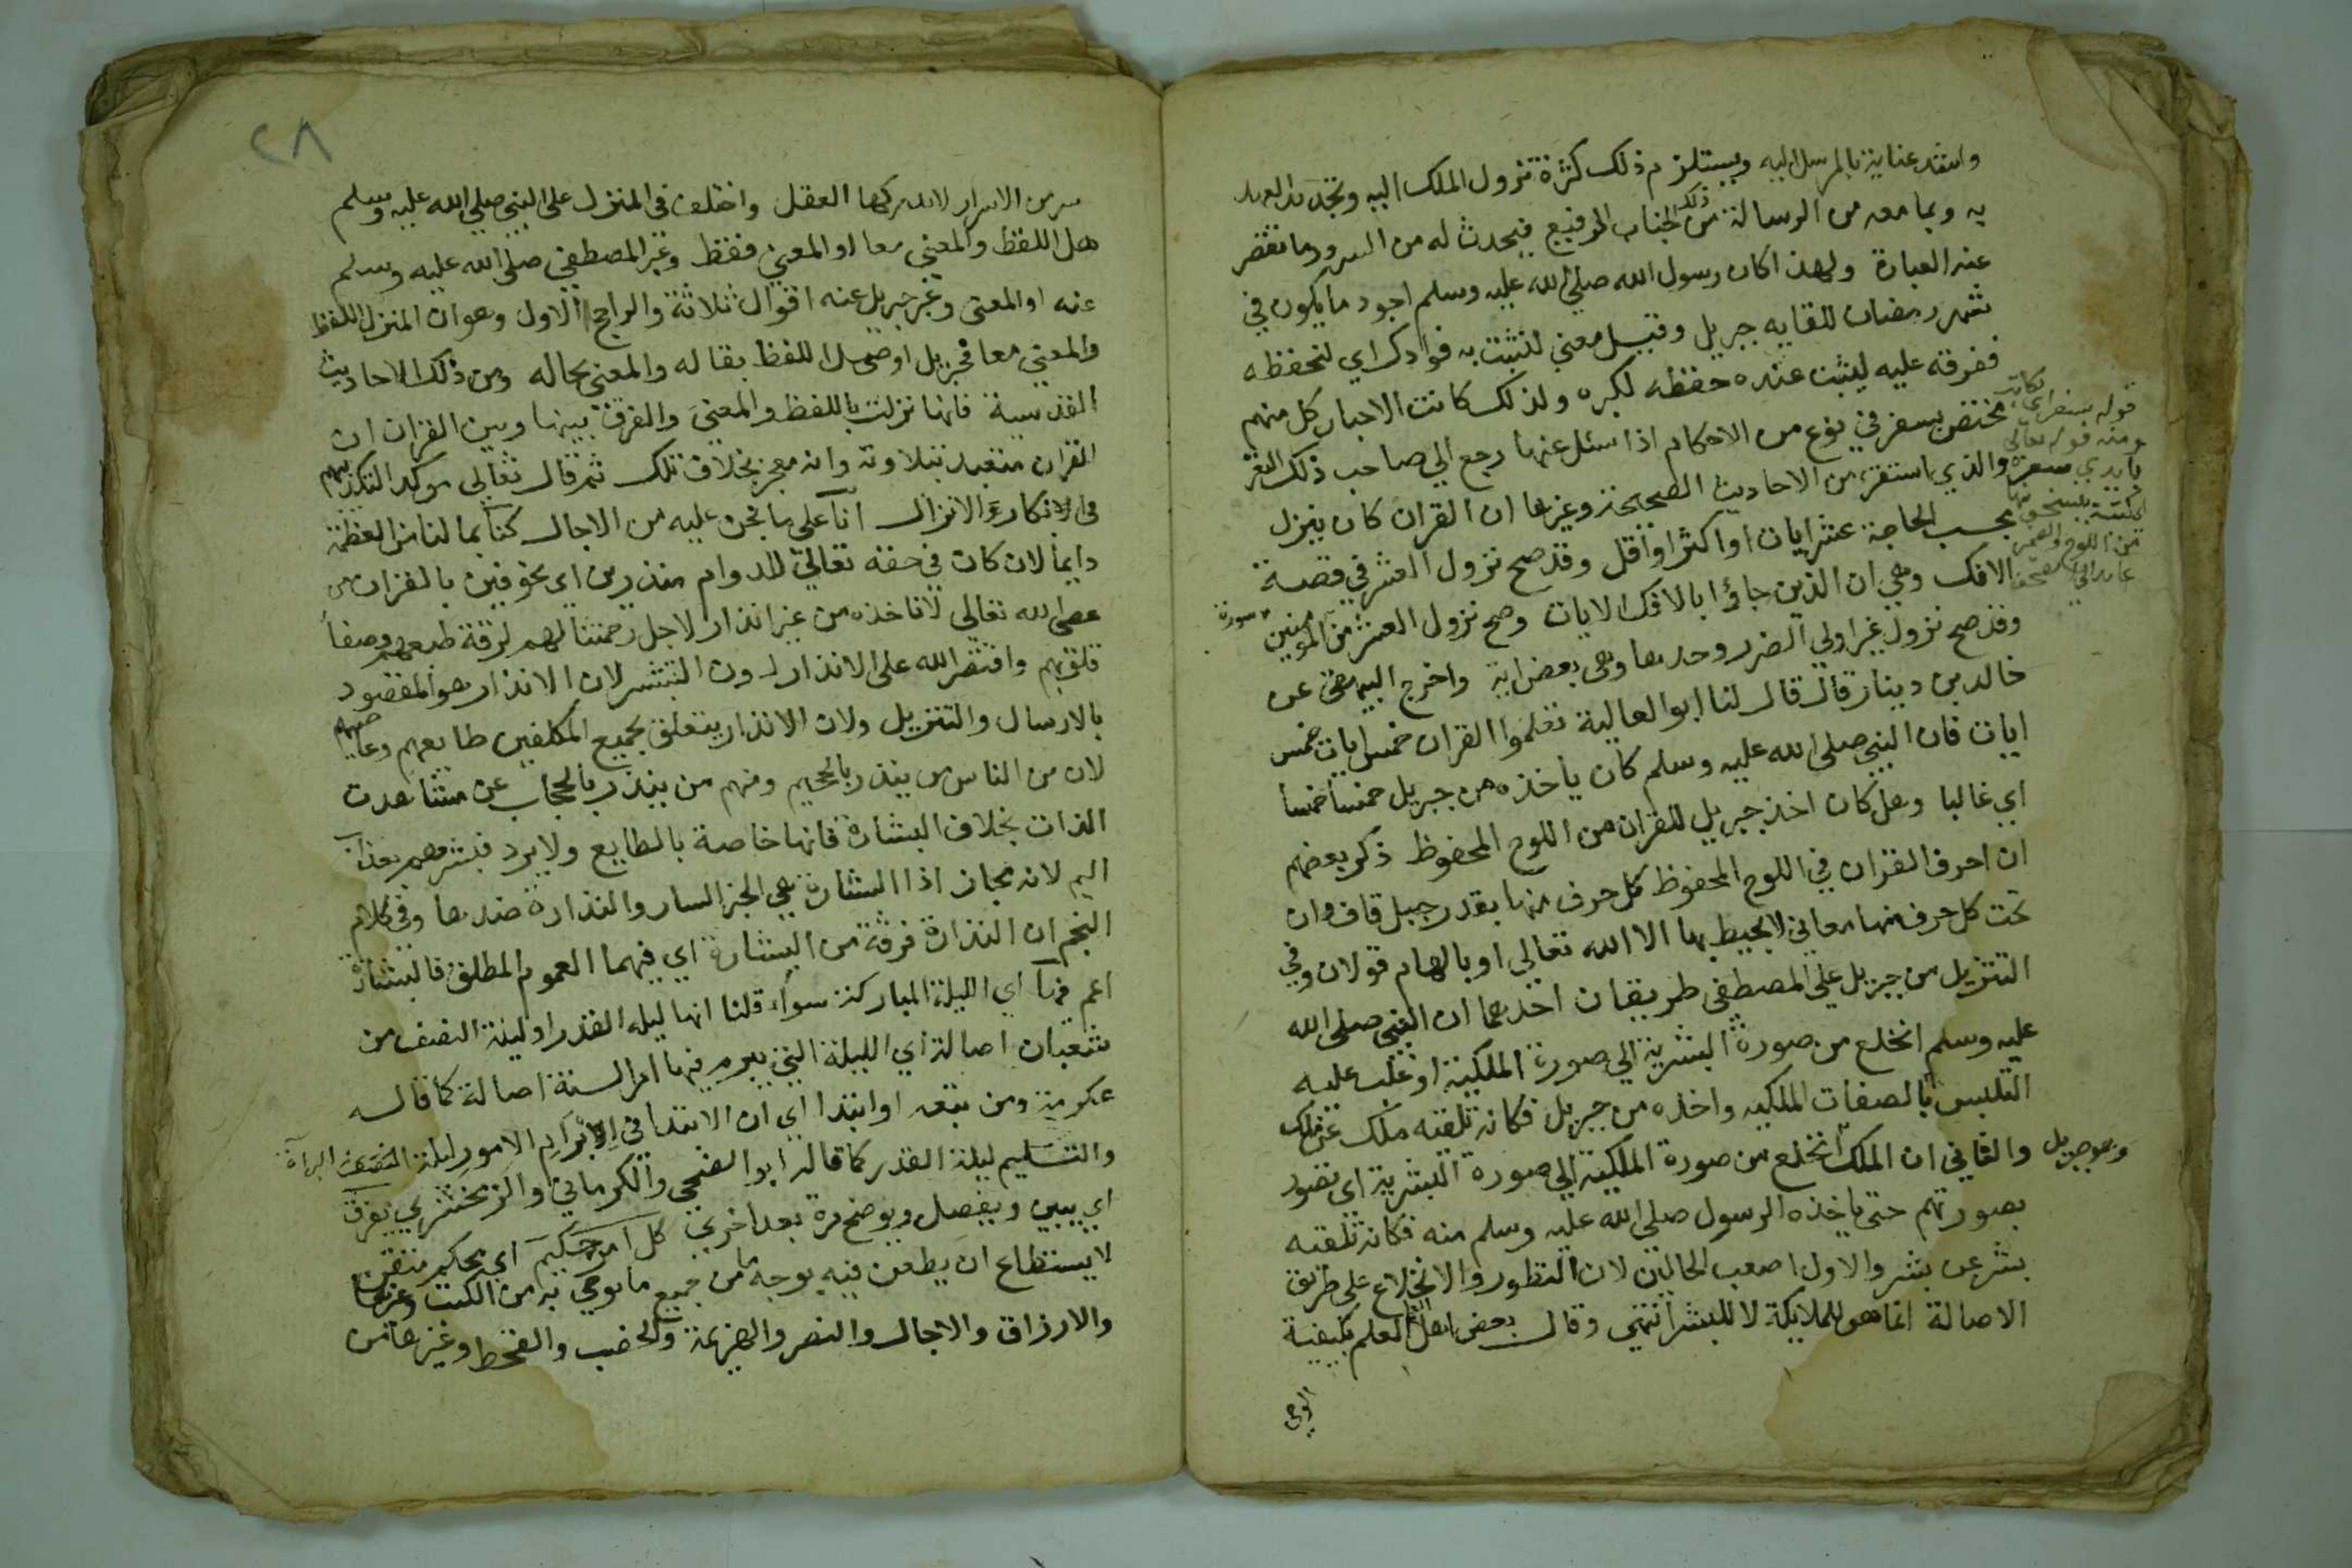 واشد عناية بالمرسل اليه ويستلزم ذلك كثرة نزول الملك اليه وتجدد العهد
به وبما معه من الرسالة من ذلك الجناب الرفيع فيحدث له من السرور ما تقصر
عنه العبارة ولهذا كان رسول الله صلى الله عليه وسلم اجود ما يكون في
شهر رمضان للقايه جبريل وقيل معني لنثبت به فوادك اي لنحفظه
ففرقه عليه ليثبت عنده حفظه لكبره ولذلك كانت الاحبار كل منهم
مختص بسفر في نوع من الاحكام اذا سئل عنها رجع الي صاحب ذلك السفر
والذي استقرء من الاحاديث الصحيحة وغيرها ان القران كان ينزل
بحسب الحاجة عشر ايات او اكثر او اقل وقد صح نزول العشر في قصة
الافك وهي ان الذين جاؤا بالافك الايات وصح نزول العشر من المومنين
سورة
وقد صح نزول غير اولي الضرر وحدها وهي بعض اية واخرج البيهقي عن
خالد بن دينار قال قال لنا ابو العالية تعلموا القران خمس ايات خمس
ايات فان النبي صلى الله عليه وسلم كان ياخذه من جبريل خمسا خمسا
اي غالبا وهل كان اخذ جبريل للقران من اللوح المحفوظ ذكر بعضهم
ان احرف القران في اللوح المحفوظ كل حرف منها بقدر جبل قاف وان
تحت كل حرف منها معاني لا يحيط بها الا الله تعالي او بالهام قولان وفي
التنزيل من جبريل علي المصطفى طريقان احدهما ان النبي صلى الله
عليه وسلم انخلع من صورة البشرية الي صورة الملكية او غلب عليه
التلبس بالصفات الملكيه واخذه من جبريل فكانه تلقنه ملك عن ملك
والثاني ان الملك انخلع من صورة الملكية الي صورة البشرية اي تصور
وهو جبريل
بصورتهم حتى ياخذه الرسول صلى الله عليه وسلم منه فكانه تلقنه
بشر عن بشر والاول اصعب الحالين لان التطور والانخلاع على طريق
الاصالة انما هو للملايكة لا للبشر انتهي وقال بعض اهل العلم بكيفية
الوحي
قوله سفر اي كتاب
ومنه قوله تعالي
بايدي سفرة
كتبة ينسخونها
من اللوح والضمير
عايد الي الصحف
٢٨
سر من الاسرار لا يدركها العقل واختلف في المنزل على النبي صلى الله عليه وسلم
هل اللفظ والمعني معا او المعني فقط وعبر المصطفي صلى الله عليه وسلم
عنه او المعنى وعبر جبريل عنه اقوال ثلاثة والراجح الاول وهو ان المنزل اللفظ
والمعني معا فجبريل اوصل اللفظ بقاله والمعني بحاله ومن ذلك الاحاديث
القدسية فانها نزلت باللفظ والمعني والفرق بينها وبين القران ان
القران متعبد بتلاوته وانه معجز بخلاف تلك ثم قال تعالى موكدا لتكذيبهم
في انكارة الانزال انا على ما نحن عليه من الاجال كنا بما لنا من العظمة
دايما لان كان في حقه تعالي للدوام منذرين اي مخوفين بالقران من
عصى الله تعالي لا ناخذه من غير انذار لاجل رحمتنا لهم لرقة طبعهم وصفا
قلوبهم واقتصر الله على الانذار دون التبشير لان الانذار هو المقصود
بالارسال والتنزيل ولان الانذار يتعلق بجميع المكلفين طايعهم وعاصيهم
لان من الناس من ينذر بالجحيم ومنهم من ينذر بالحجاب عن مشاهدت
الذات بخلاف البشارة فانها خاصة بالطايع ولا يرد فبشرهم بعذاب
اليم لانه مجاز اذا البشارة هي الخبر السار والنذارة ضدها وفي كلام
النجم ان النذارة فرقة من البشارة اي فيهما العموم المطلق فالبشارة
اعم فيها اي الليلة المباركة سواء قلنا انها ليله القدر او ليلة النصف من
شعبان اصالة اي الليلة التي يبرم فيها امر السنة اصالة كما قاله
عكرمة ومن تبعه او ابتدا اي ان الابتدا في الابرام الامور ليلة النصف البراة
والتسليم ليلة القدر كما قاله ابو الضحي والكرماني والزمخشري يفرق
اي يبين ويفصل ويوضح مرة بعد اخري كل امر حكيم اي محكم متقن
لا يستطاع ان يطعن فيه بوجه ما من جميع ما يوحي به من الكتب وغيرها
والارزاق والاجال والنصر والهزيمة والخصب والقحط وغيرها من